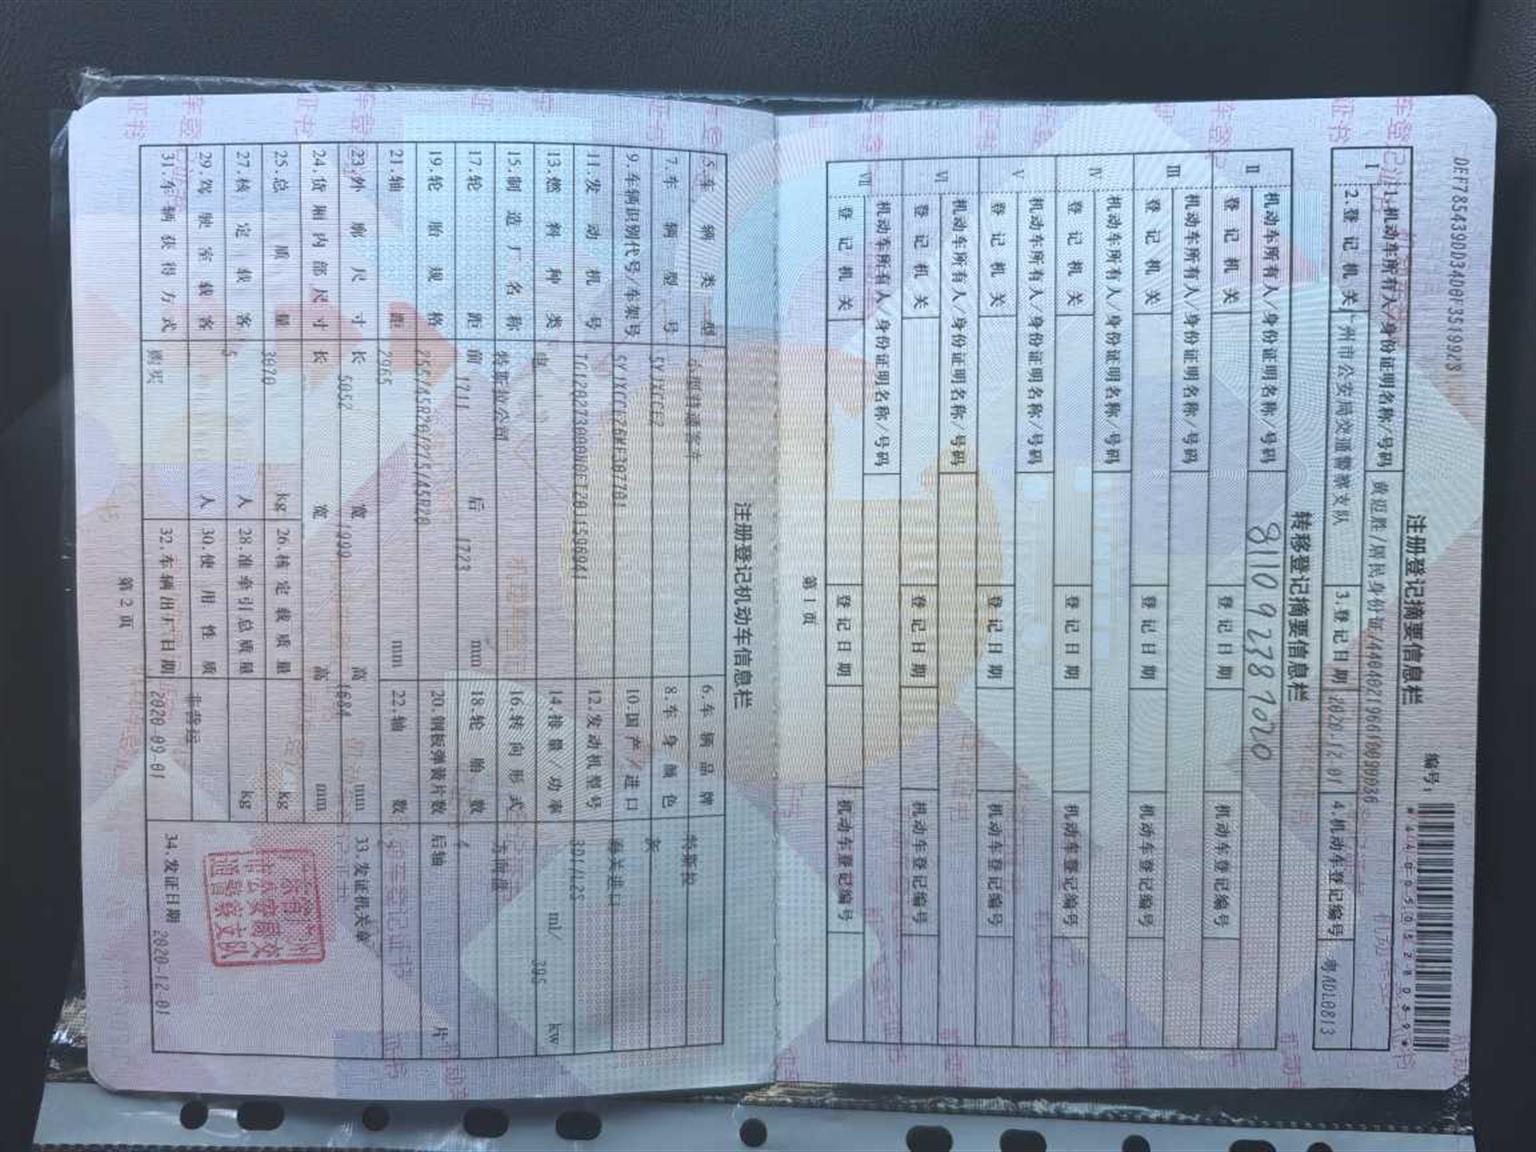 DEF785439DD34D8F3519928
注册登记摘要信息栏
编号:
*440050528059*
I
1.机动车所有人/身份证明名称/号码 黄迈胜/居民身份证/440402196610090036
2.登记机关 广州市公安局交通警察支队 3.登记日期 2020-12-01 4.机动车登记编号 粤ADL0813
转移登记摘要信息栏
811092387020
II 机动车所有人/身份证明名称/号码
登记机关 登记日期 机动车登记编号
III 机动车所有人/身份证明名称/号码
登记机关 登记日期 机动车登记编号
IV 机动车所有人/身份证明名称/号码
登记机关 登记日期 机动车登记编号
V 机动车所有人/身份证明名称/号码
登记机关 登记日期 机动车登记编号
VI 机动车所有人/身份证明名称/号码
登记机关 登记日期 机动车登记编号
VII 机动车所有人/身份证明名称/号码
登记机关 登记日期 机动车登记编号
第1页
注册登记机动车信息栏
5.车辆类型 小型普通客车 6.车辆品牌 特斯拉
7.车辆型号 5YJXCCE2 8.车身颜色 灰
9.车辆识别代号/车架号 10.国产/进口 海关进口
11.发动机号 12.发动机型号
13.燃料种类 电 14.排量/功率 ml/ 395 kw
15.制造厂名称 特斯拉公司 16.转向形式 方向盘
17.轮距 前 1711 后 1723 mm 18.轮胎数 4
19.轮胎规格 255/45R20/275/45R20 20.钢板弹簧片数 后轴 片
21.轴距 2965 mm 22.轴数
23.外廓尺寸 长 5052 宽 1999 高 1684 mm 33.发证机关章
24.货厢内部尺寸 长 宽 高 mm
25.总质量 3070 kg 26.核定载质量 kg
27.核定载客 5 人 28.准牵引总质量 kg
29.驾驶室载客 人 30.使用性质 非营运
31.车辆获得方式 购买 32.车辆出厂日期 2020-09-01 34.发证日期 2020-12-01
第2页